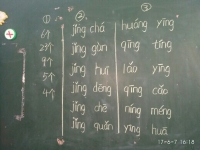 ① ② ③
6个 jǐng chá huáng yīng
23个 jīng gàn qīng tíng
9个 jīng huī lǎo yīng
8个 jǐng dēng qīng cǎo
5个 jǐng chē níng méng
4个 jǐng quǎn yīng huā
17-6-7 16:18